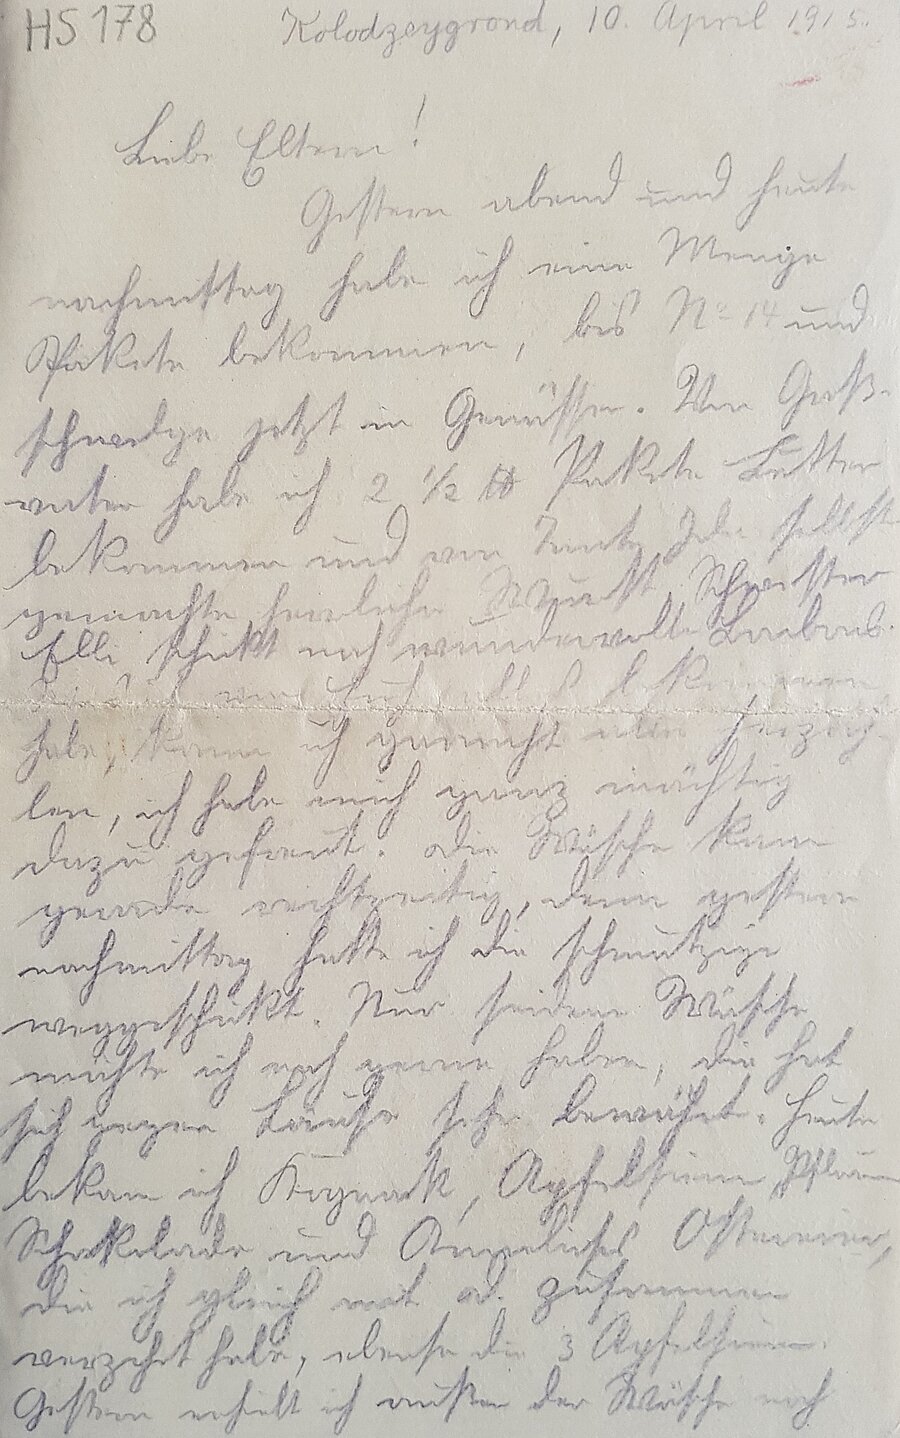 HS 178
Kolodzeygrond, 10. April 1915.
Liebe Eltern!
Gestern abend und heute
nachmittag habe ich eine Menge
Pakete bekommen, bis No 14 und
schwelge jetzt in Genüssen. Von Groß-
vater habe ich 2 1/2 ℔ Pakete Butter
bekommen und von Tante Ida selbst
gemachte herrliche Wurst. Schwester
Elli schickt noch wundervolle
von Euch alles bekommen
habe, kann ich garnicht alles herzäh-
len, ich habe mich ganz mächtig
dazu gefreut. Die Wäsche kam
gerade rechtzeitig, denn gestern
nachmittag hatte ich die schmutzige
weggeschickt. Nur seidene Wäsche
möchte ich noch gerne haben, die hat
sich gegen Läuse sehr bewährt. Heute
bekam ich Kognak, Apfelsinen
Schokolade und Annelieses Ostereier,
die ich gleich mit zusammen
verzehrt habe, ebenso die 3 Apfelsinen.
Gestern erhielt ich außer der Wäsche noch